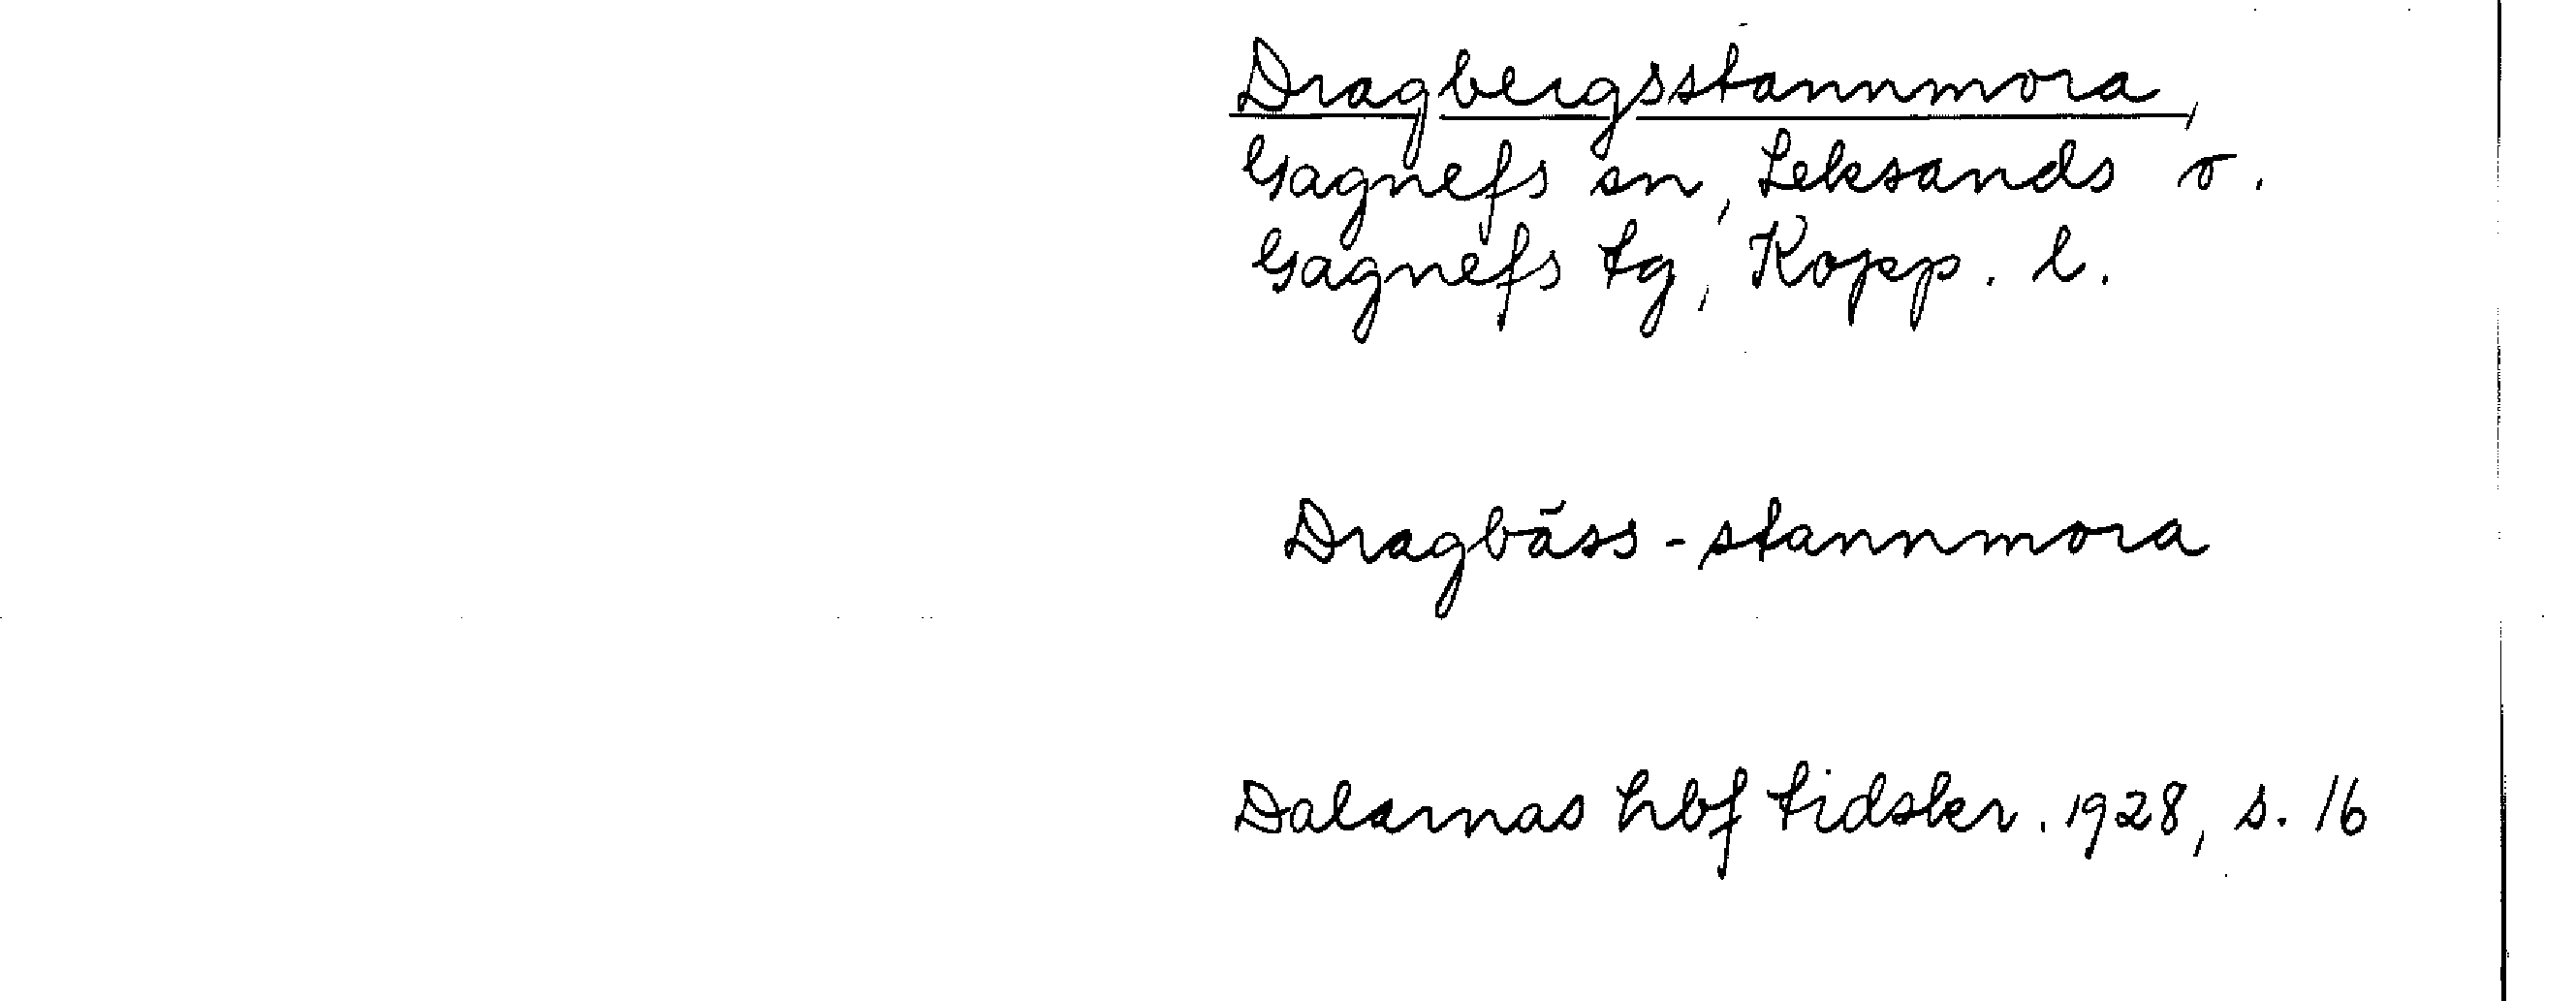 Dragbergsstannmora,
Gagnefs sn, Leksands o.
Gagnefs tg, Kopp. l.
Dragbäss-stannmora
Dalarnas hbf tidskr. 1928, s. 16